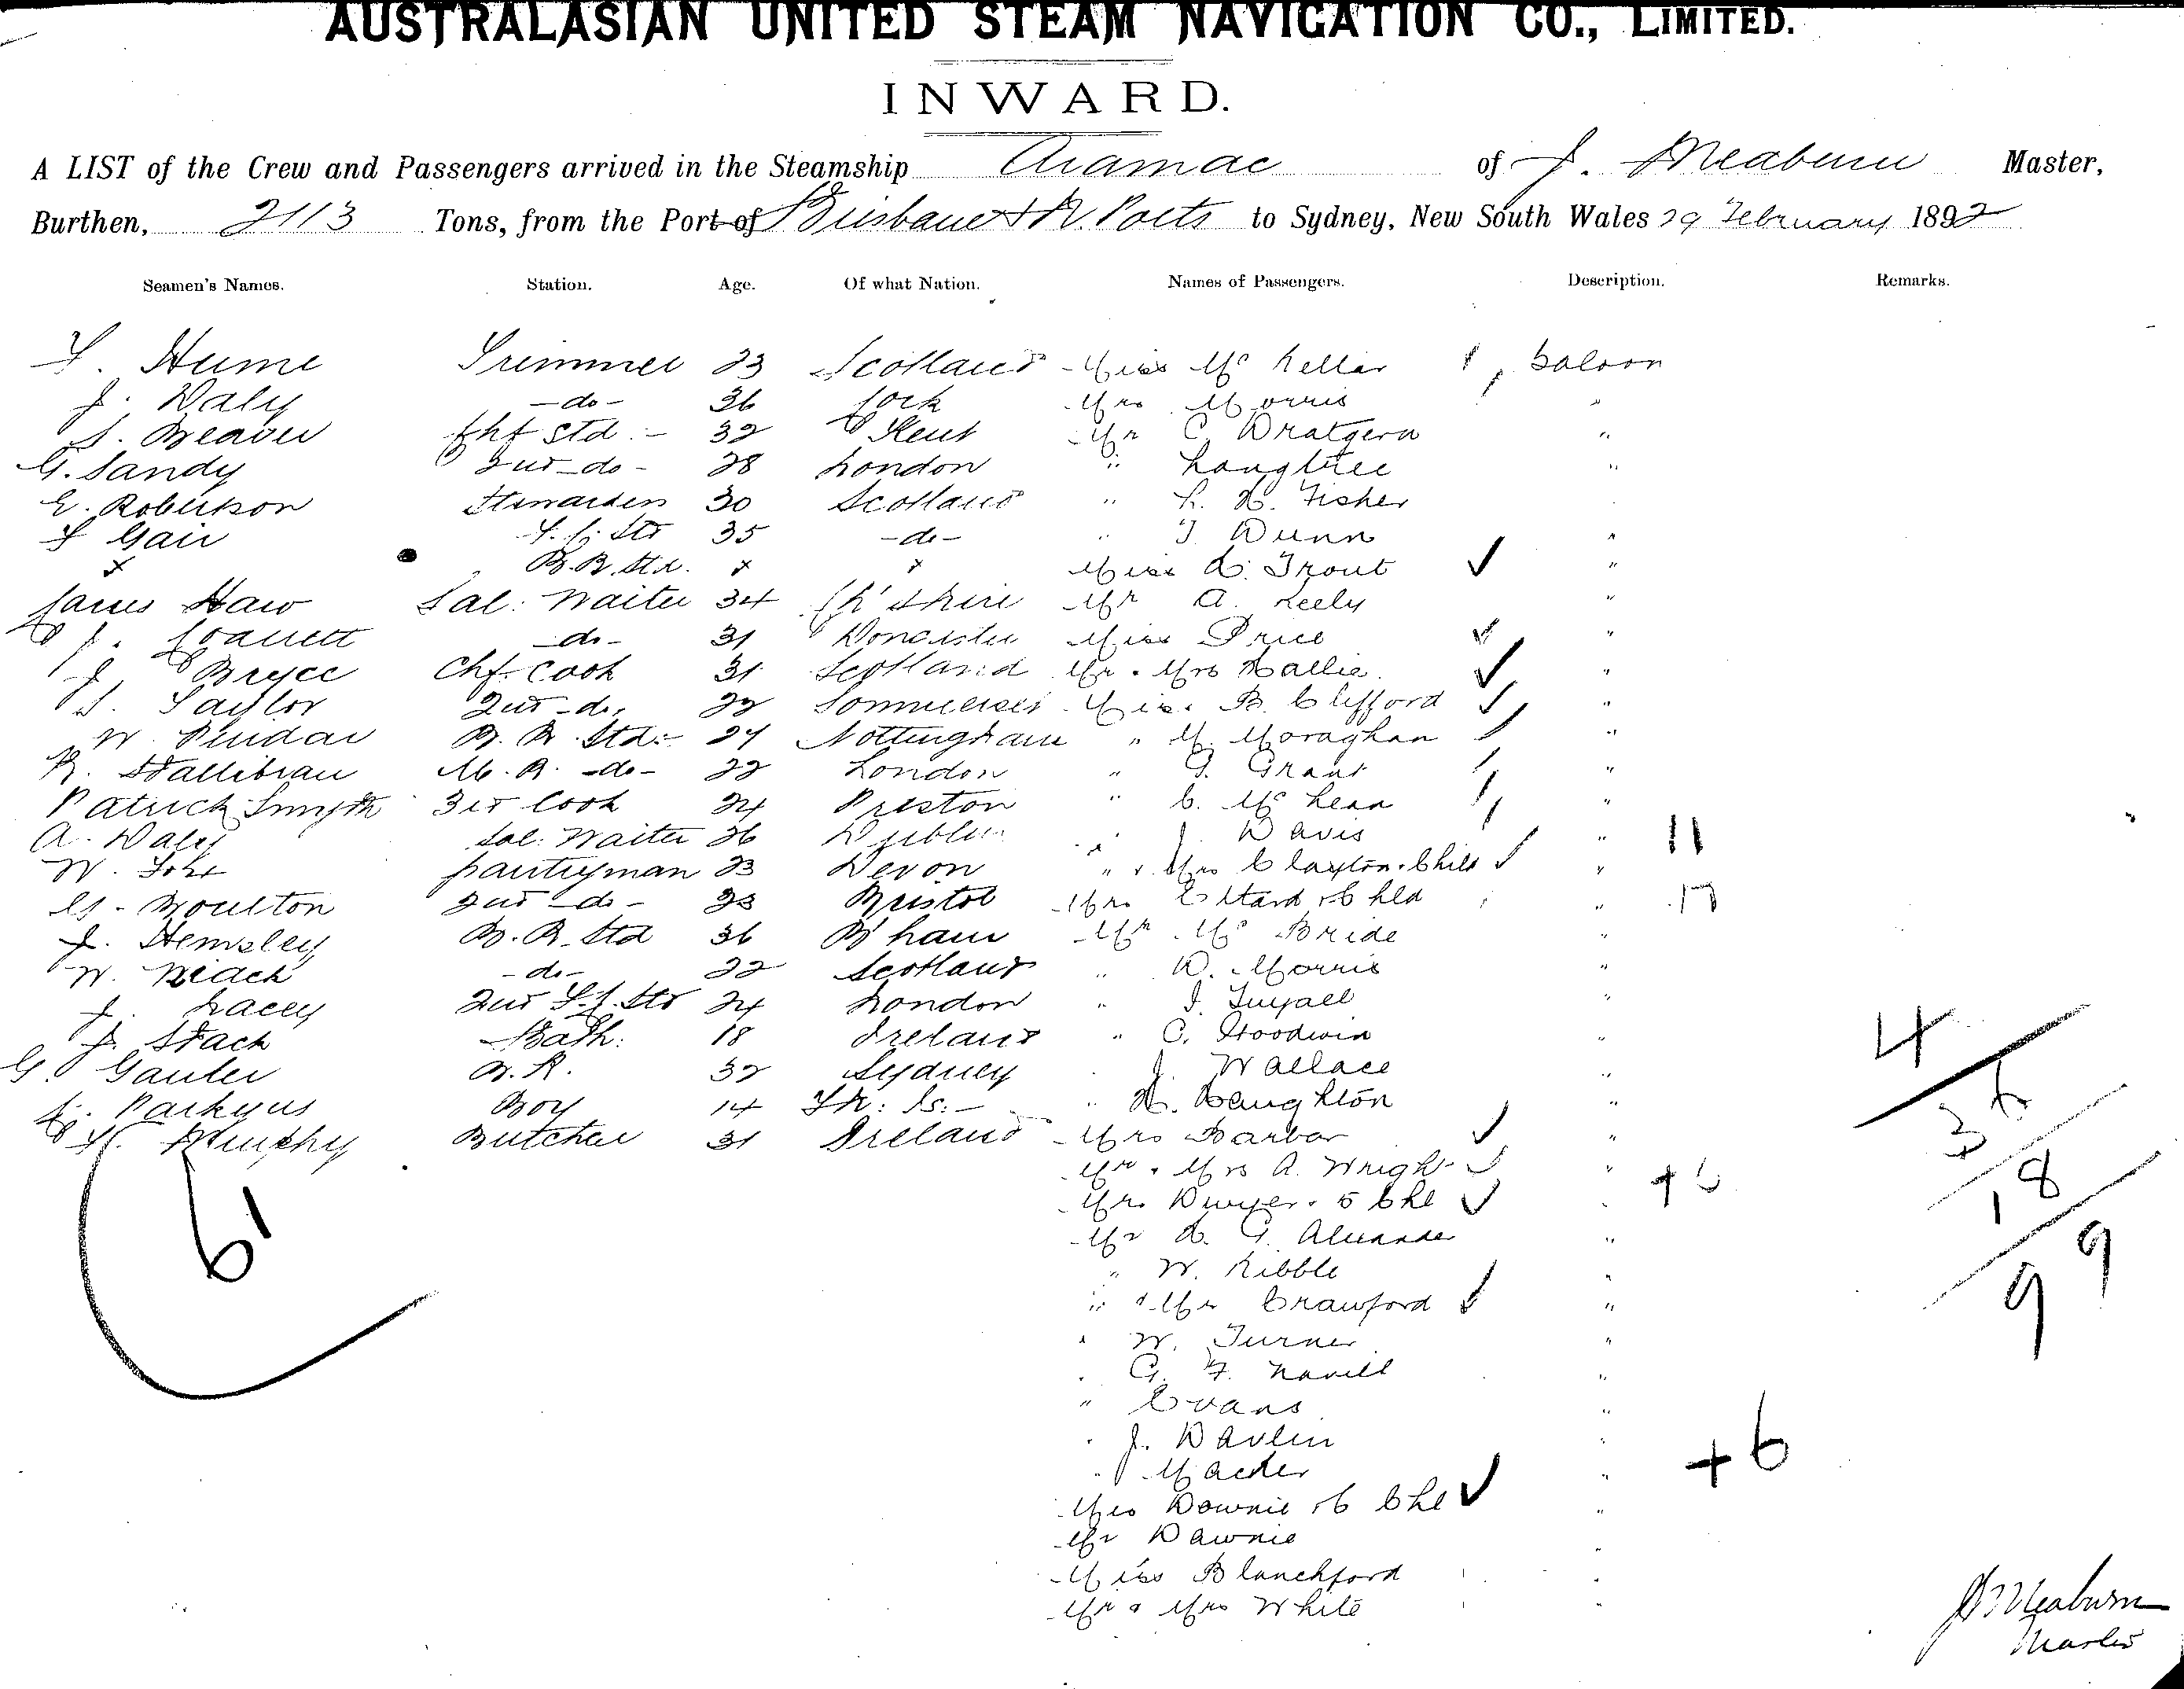 AUSTRALASIAN UNITED STEAM NAVIGATION CO., LIMITED.
INWARD.
A LIST of the Crew and Passengers arrived in the Steamship Aramac of J. Meaburn Master,
Burthen, 2113 Tons, from the Port of Brisbane & N. Ports to Sydney, New South Wales 29 February 1892
Seamen's Names. Station. Age. Of what Nation. Names of Passengers. Description. Remarks.
Hume Trimmer 23 Scotland Miss Mc Kellar 1 Saloon
J. Daly -do- 36 Cork Mrs Morris "
S. Beaver Chf Std :- 32 Kent Mr C. "
G. Sandy 2nd -do- 28 London " Longtree "
E. Robertson Stewardess 30 Scotland " L. H. Fisher
Gair Std 35 -do- " J. Dunn "
x B.R. Std. x x Miss A. Trout ✓ "
James Haw Sal: Waiter 34 Mr A. Keely "
J. -do- 31 Doncaster Miss Price ✓ "
J. Bryce Chf Cook 31 Scotland Mr & Mrs Hallie ✓ "
S. Taylor 2nd -do- 22 Sommerset Miss B. Clifford ✓ "
W. Pindar B. R. Std :- 24 Nottingham " M. Moraghan "
R. Hallibrau M. R. -do- 22 London " G. Grant "
Patrick Smyth 3rd Cook 24 Preston " C. Mc Lean "
A. Daley Sal: Waiter 26 Dublin " J. Davis " 11
W. pantryman 23 Devon " & Mrs Claxton & Child ✓ "
G. Moulton 2nd -do- 23 Bristol Mrs & Chld " 17
J. Hemsley B. R. Std 36 B'ham Mr Mc Bride "
W. Niach -do- 22 Scotland " D. Morris "
J. Lacey 2nd Std 24 London " J. "
J. Stack Bath: 18 Ireland " C. Goodwin "
G. Gauler B. R. 32 Sydney J. Wallace "
Parkyns Boy 14 " H. Haughton "
Murphy Butcher 31 Ireland Mrs Barbor ✓ "
Mr & Mrs A. Wright ✓ " + 6
Mrs Dwyer & 5 Chl ✓
Mr A. G. Alexander "
" W. Kibble "
" & Mrs Crawford ✓ "
" W. Turner "
" G. F. Navill "
" Evans "
" J. Davlin "
" Mader " + 6
Mrs Downie & 6 Chl ✓ "
Mr Downie "
Miss Blanchford "
Mr & Mrs White "
61
4
3
18
99
J Meaburn
Master